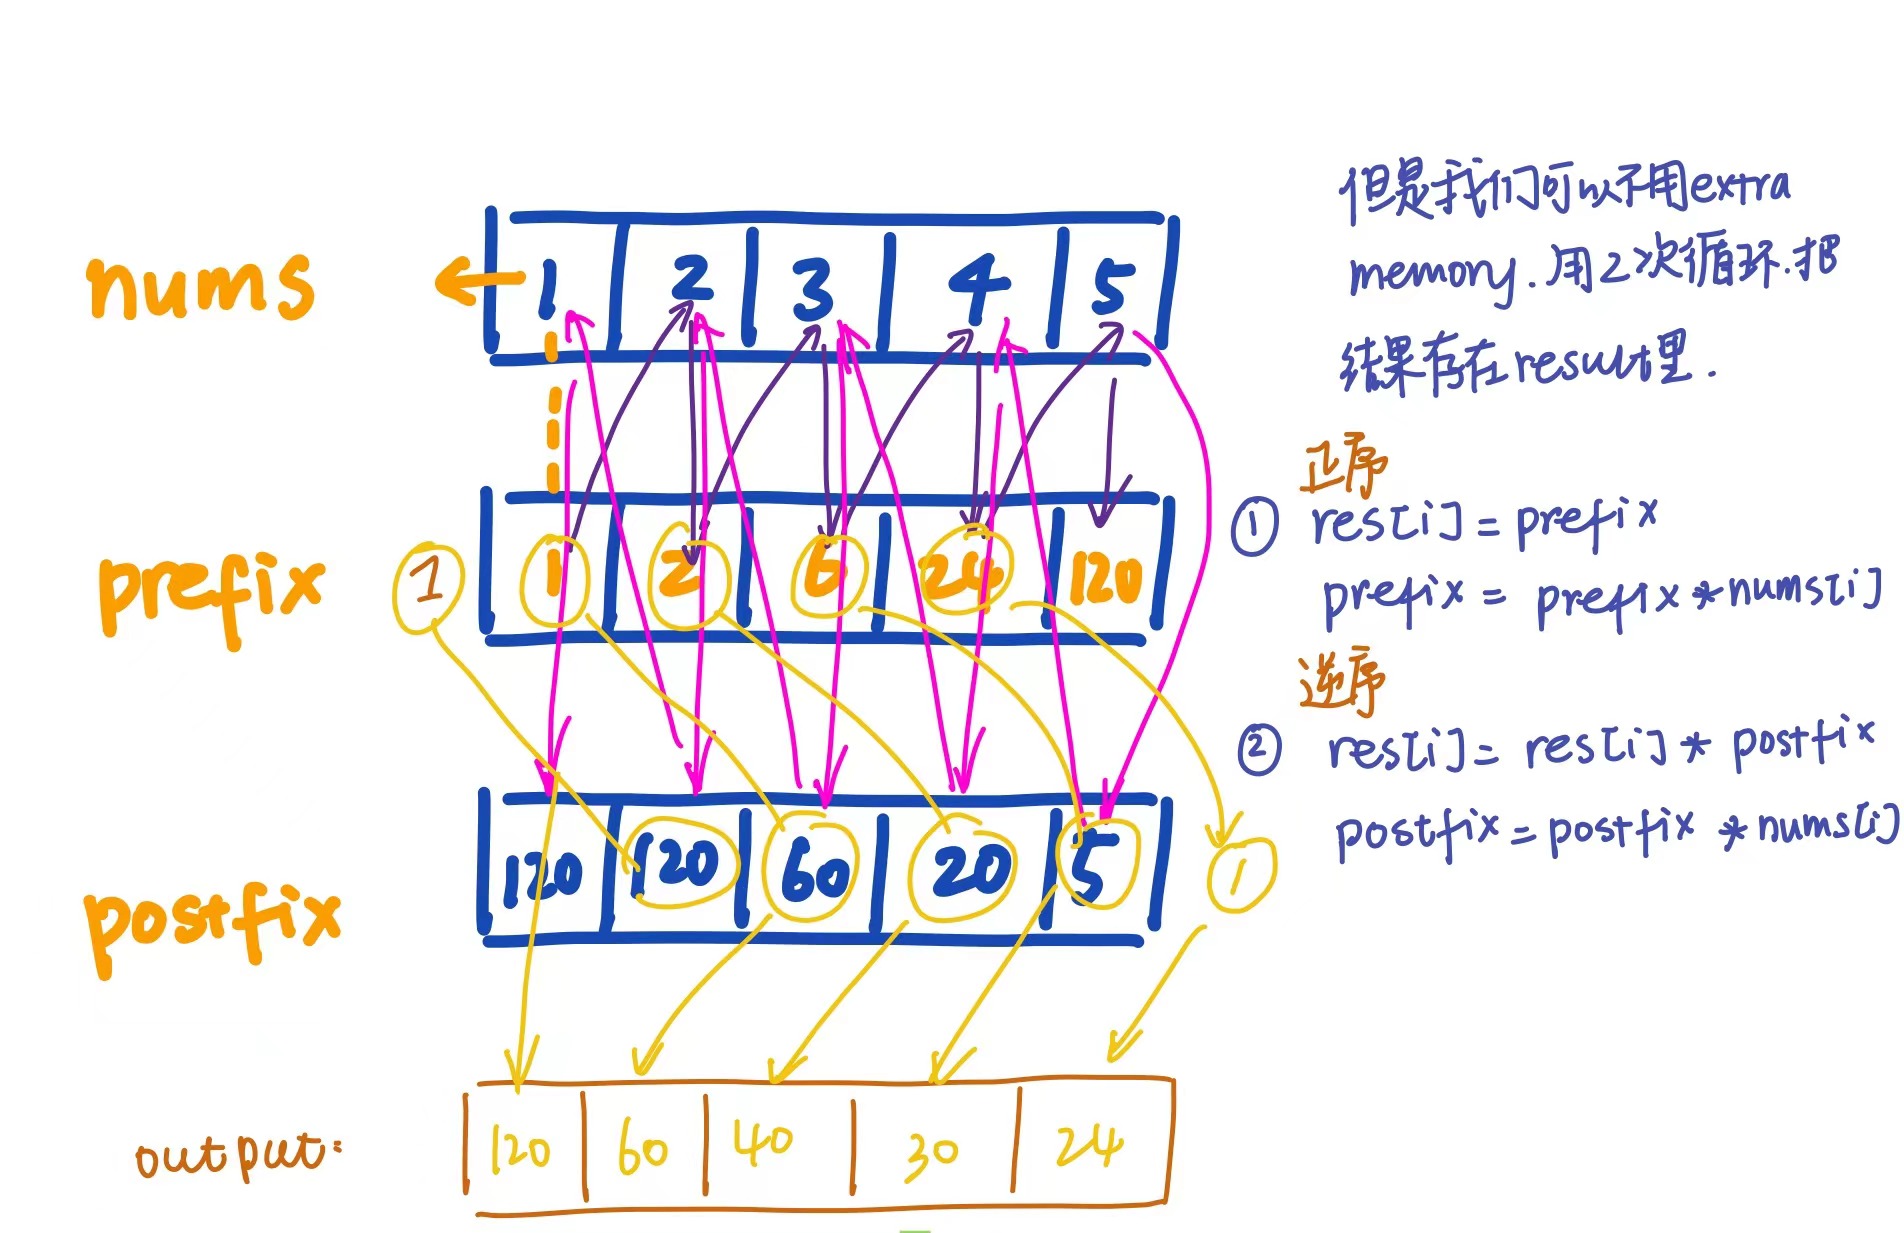 nums 1 2 3 4 5
prefix 1 1 2 6 24 120
postfix 120 120 60 20 5 1
output: 120 60 40 30 24
但是我们可以不用extra
memory.用2次循环.把
结果存在result里.
正序
① res[i] = prefix
prefix = prefix * nums[i]
逆序
② res[i] = res[i] * postfix
postfix = postfix * nums[i]